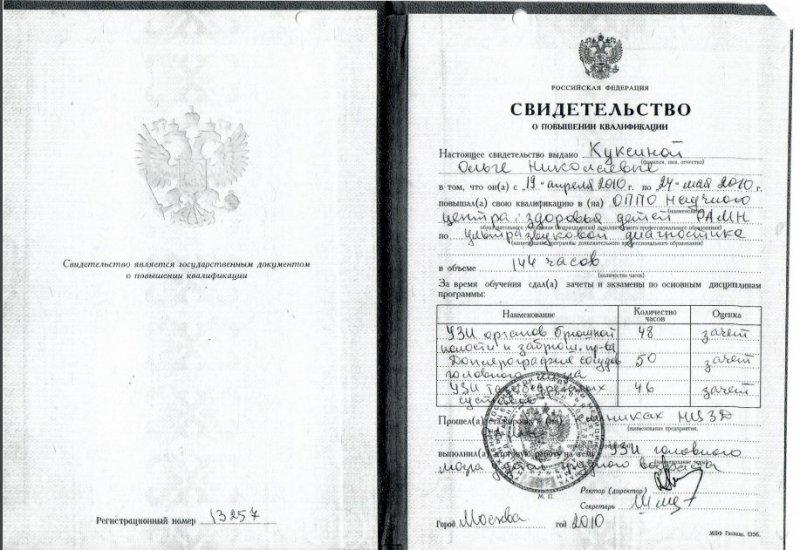 Свидетельство является государственным документом
о повышении квалификации
Регистрационный номер 13257
РОССИЙСКАЯ ФЕДЕРАЦИЯ
СВИДЕТЕЛЬСТВО
О ПОВЫШЕНИИ КВАЛИФИКАЦИИ
Настоящее свидетельство выдано Куксиной
(фамилия, имя, отчество)
Ольге Николаевне
в том, что он(а) с 19 апреля 2010 г. по 24 мая 2010 г.
повышал(а) свою квалификацию в (на) ОППО Научного
(наименование)
центра здоровья детей РАМН
образовательного учреждения (подразделения) дополнительного профессионального образования)
по ультразвуковой диагностике
(наименование программы дополнительного профессионального образования)
в объеме 144 часов
(количество часов)
За время обучения сдал(а) зачеты и экзамены по основным дисциплинам
программы:
Наименование Количество часов Оценка
УЗИ органов брюшной 48 зачет
полости и забрюш. пр-ва
Допплерография сосудов 50 зачет
головного мозга
УЗИ тазобедренных 46 зачет
суставов
Прошел(а) стажировку в (на) клиниках НЦЗД
(наименование предприятия,
выполнил(а) итоговую работу на тему УЗИ головного
мозга детей грудного возраста
Ректор (директор)
Секретарь
М. П.
Город Москва год 2010
МПФ Гознака. 1996.